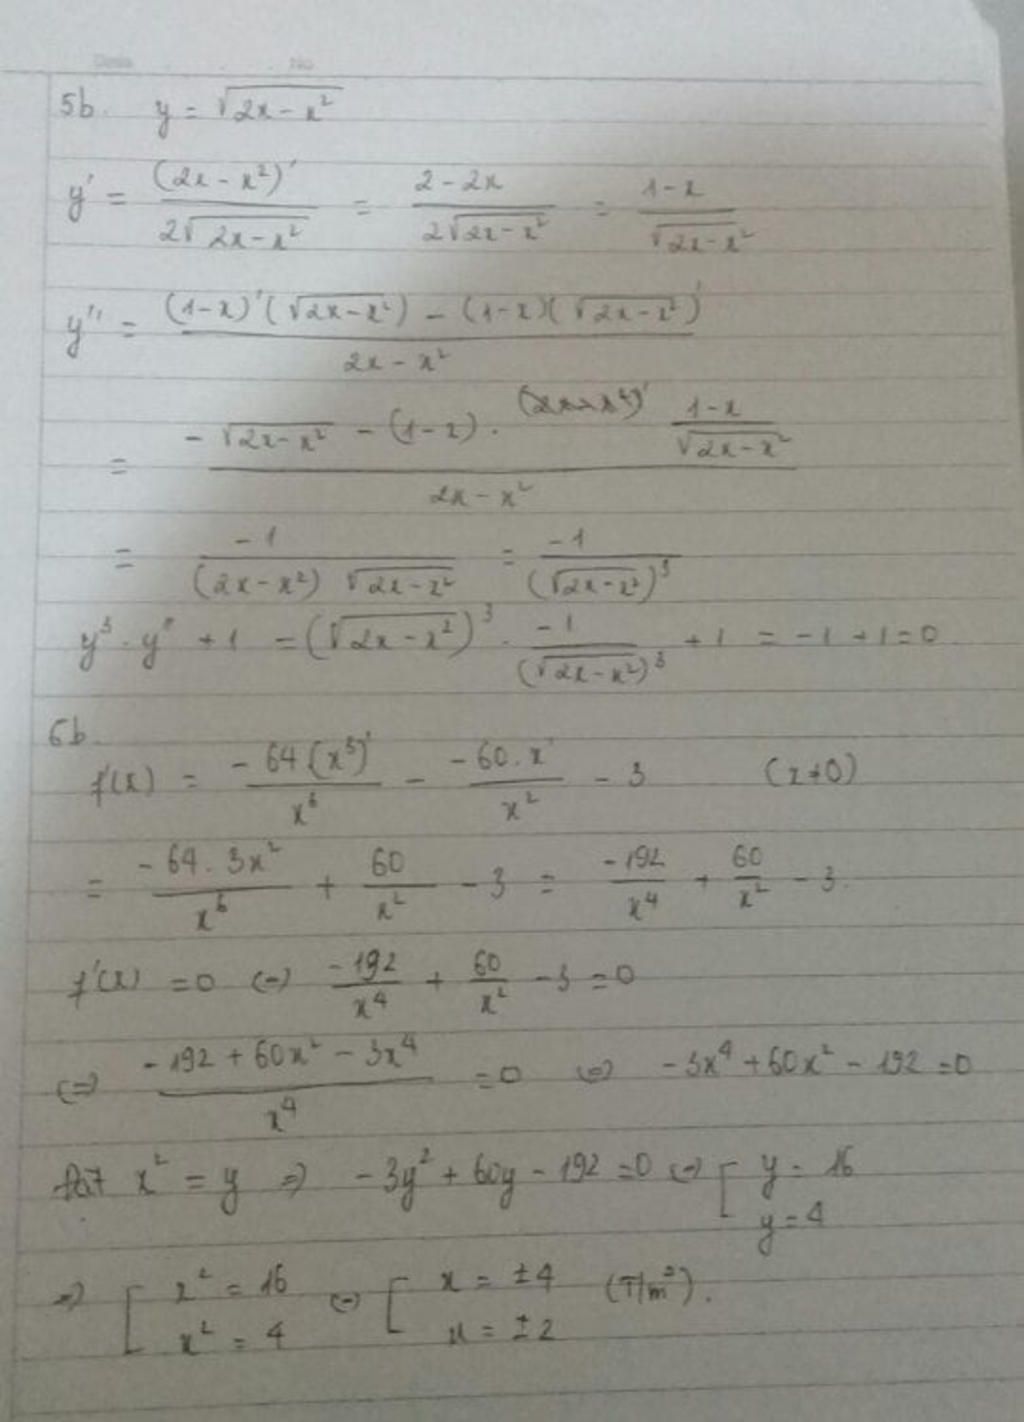 Date No
5b. y = √(2x - x²)
y' = (2x - x²)' / (2√(2x - x²)) = (2 - 2x) / (2√(2x - x²)) = (1 - x) / √(2x - x²)
y'' = ((1-x)'(√(2x - x²)) - (1-x)(√(2x - x²))') / (2x - x²)
= (-√(2x - x²) - (1-x) · (1-x) / √(2x - x²)) / (2x - x²)
= -1 / ((2x - x²) √(2x - x²)) = -1 / (√(2x - x²))³
y³ · y'' + 1 = (√(2x - x²))³ · -1 / (√(2x - x²))³ + 1 = -1 + 1 = 0
6b.
f'(x) = -64(x³)' / x⁶ - -60 . x' / x² - 3 (x≠0)
= -64 . 3x² / x⁶ + 60 / x² - 3 = -192 / x⁴ + 60 / x² - 3.
f'(x) = 0 (=) -192 / x⁴ + 60 / x² - 3 = 0
(=) (-192 + 60x² - 3x⁴) / x⁴ = 0 (=) -3x⁴ + 60x² - 192 = 0
Đặt x² = y => -3y² + 60y - 192 = 0 (=) [ y = 16
y = 4
=> [ x² = 16 (=) [ x = ±4 (T/m²).
x² = 4 x = ±2